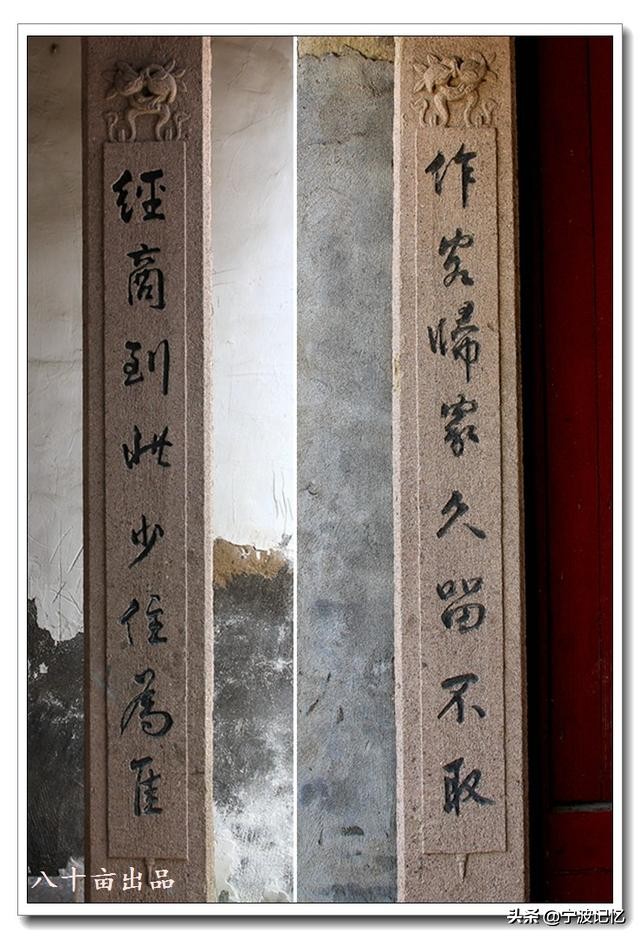 作客歸家久留不取
經商到此少住為佳
八十亩出品
头条 @宁波记忆